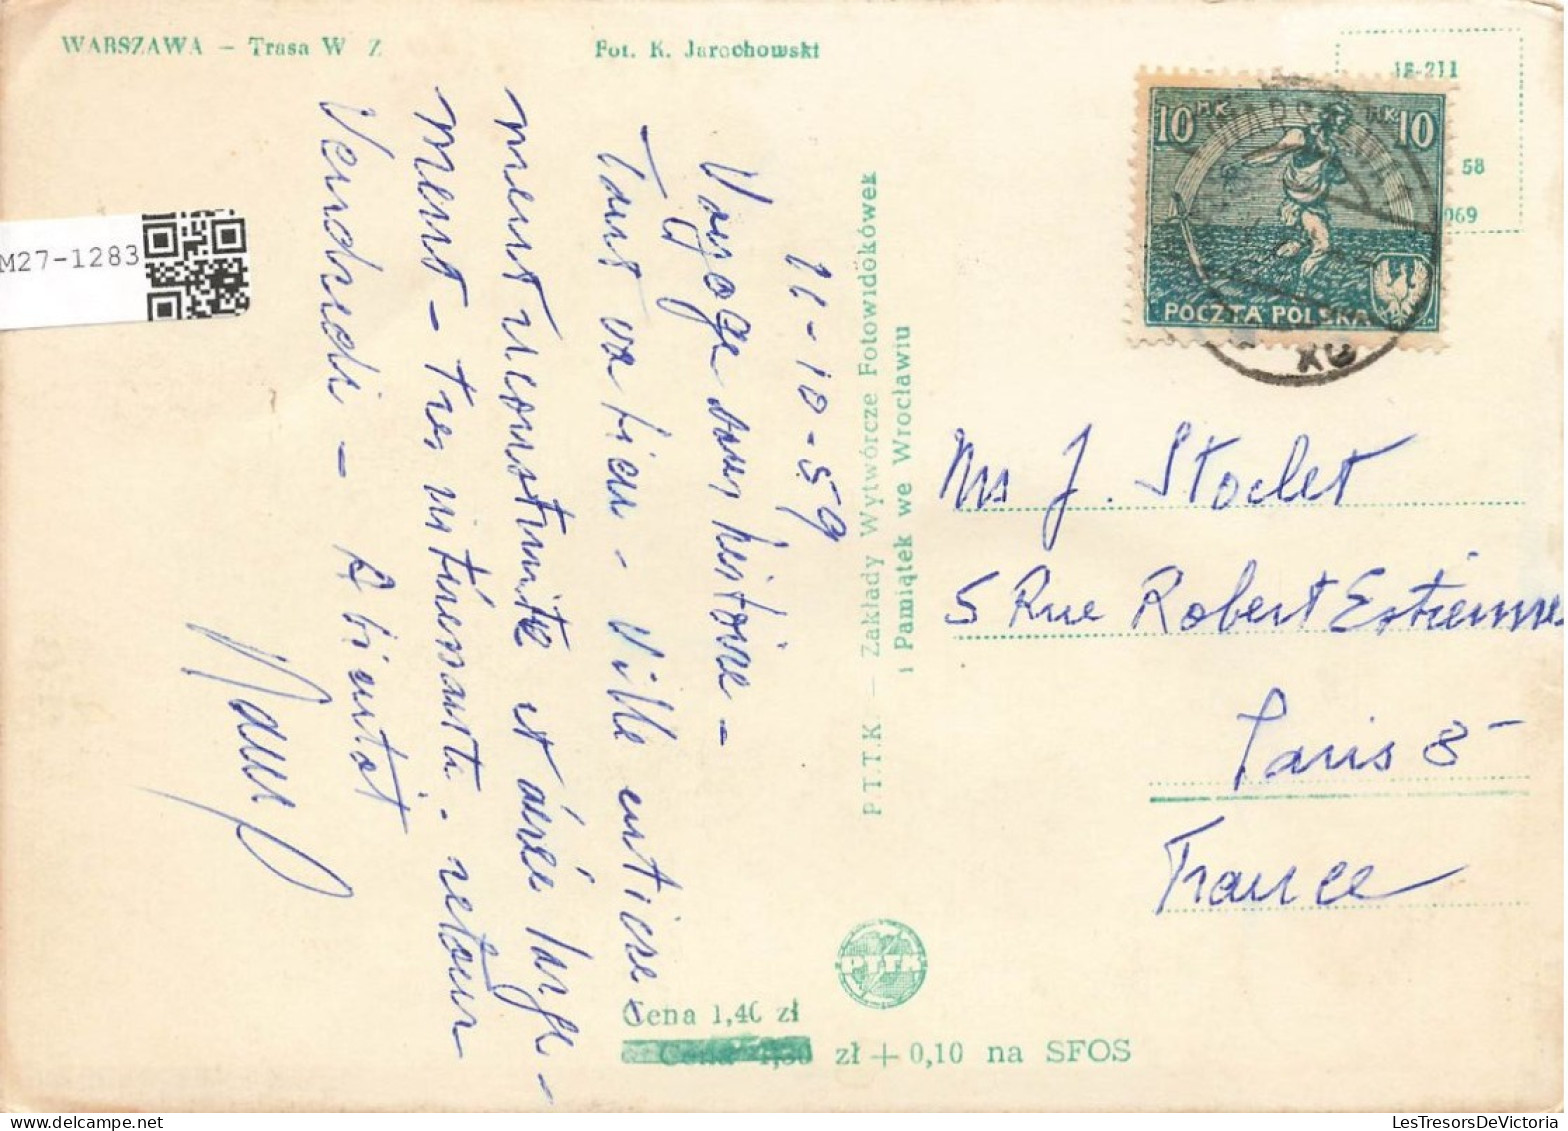 WARSZAWA – Trasa W Z
Fot. K. Jarochowski
18-211
58
069
10 MK
MK 10
WARSZAWA
POCZTA POLSKA
M27-1283
11-10-59
Voyage sans histoire –
Tout va bien – Ville entière-
ment reconstruite et aérée large-
ment – très intéressante. retour
Vendredi – A bientôt
P.T.T.K — Zakłady Wytwórcze Fotowidokówek
i Pamiątek we Wrocławiu
Ms J. Stoclet
5 Rue Robert Estienne
Paris 8
France
PTTK
Cena 1,40 zł
Cena 1,30 zł + 0,10 na SFOS
LesTresorsDeVictoria